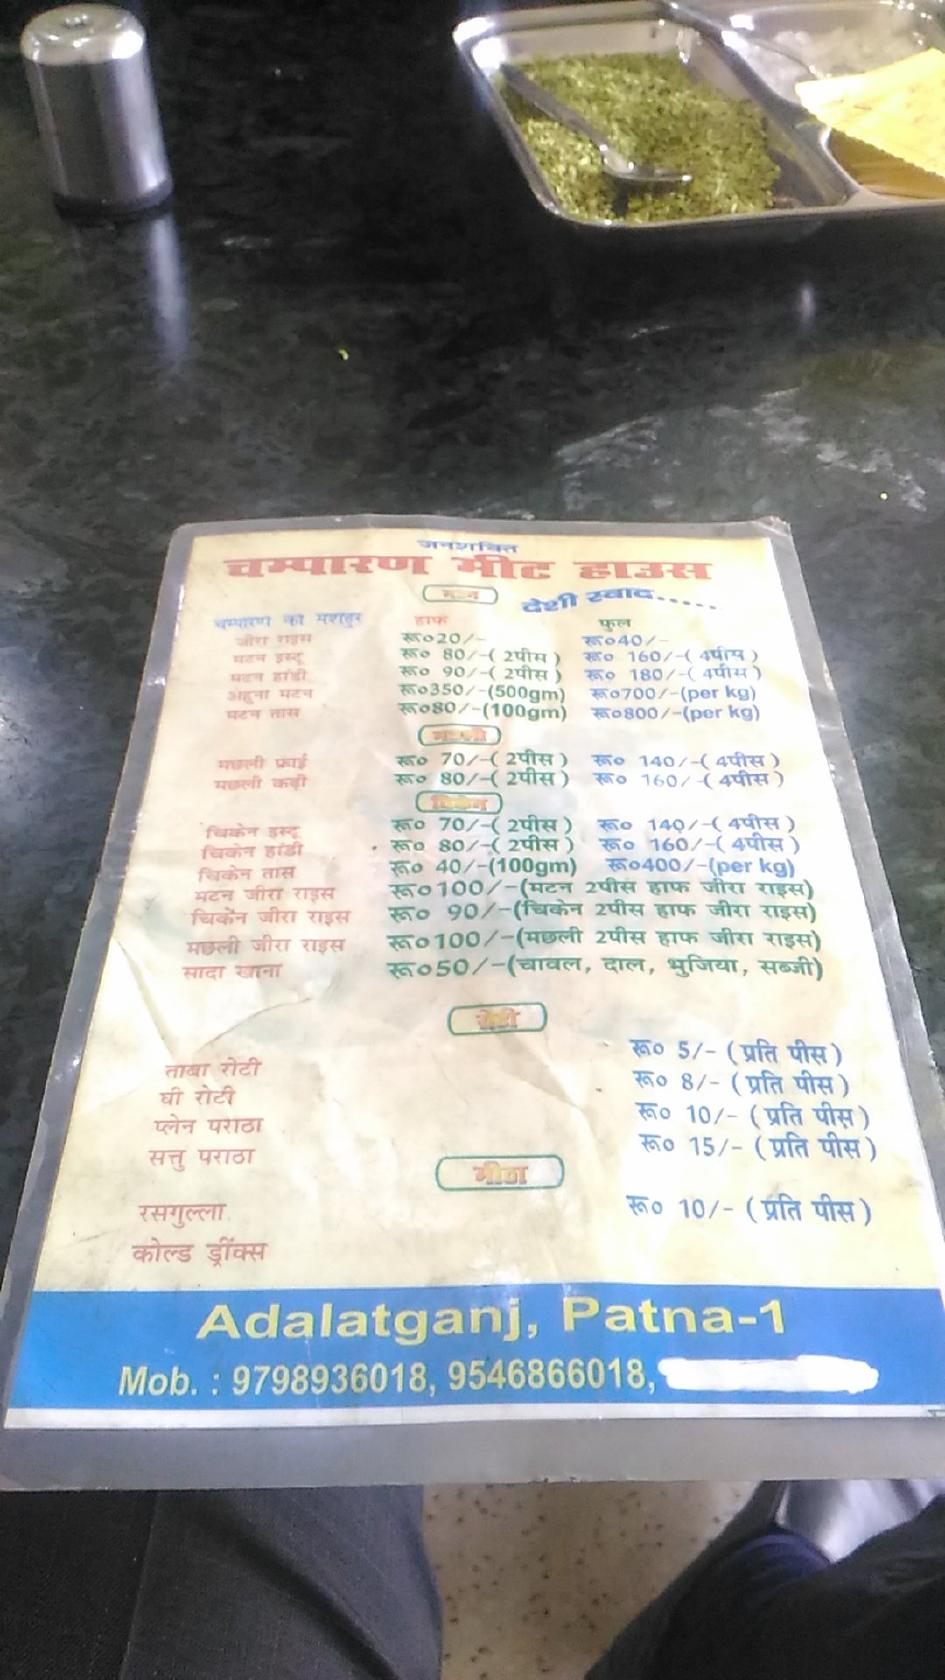 जनशक्ति
चम्पारण मीट हाउस
मटन देशी स्वाद.....
चम्पारण का मशहूर हाफ फुल
जीरा राइस रू०20/- रू०40/-
मटन इस्टू रू० 80/-( 2पीस ) रू० 160/-( 4पीस )
मटन हांडी रू० 90/-( 2पीस ) रू० 180/-( 4पीस )
अहुना मटन रू०350/-(500gm) रू०700/-(per kg)
मटन तास रू०80/-(100gm) रू०800/-(per kg)
मछली
मछली फ्राई रू० 70/-( 2पीस ) रू० 140/-( 4पीस )
मछली कढ़ी रू० 80/-( 2पीस ) रू० 160/-( 4पीस )
चिकेन
चिकेन इस्टू रू० 70/-( 2पीस ) रू० 140/-( 4पीस )
चिकेन हांडी रू० 80/-( 2पीस ) रू० 160/-( 4पीस )
चिकेन तास रू० 40/-(100gm) रू०400/-(per kg)
मटन जीरा राइस रू०100/-(मटन 2पीस हाफ जीरा राइस)
चिकेन जीरा राइस रू० 90/-(चिकेन 2पीस हाफ जीरा राइस)
मछली जीरा राइस रू०100/-(मछली 2पीस हाफ जीरा राइस)
सादा खाना रू०50/-(चावल, दाल, भुजिया, सब्जी)
रोटी
ताबा रोटी रू० 5/- ( प्रति पीस )
घी रोटी रू० 8/- ( प्रति पीस )
प्लेन पराठा रू० 10/- ( प्रति पीस )
सत्तु पराठा रू० 15/- ( प्रति पीस )
मीठा
रसगुल्ला रू० 10/- ( प्रति पीस )
कोल्ड ड्रींक्स
Adalatganj, Patna-1
Mob. : 9798936018, 9546866018,